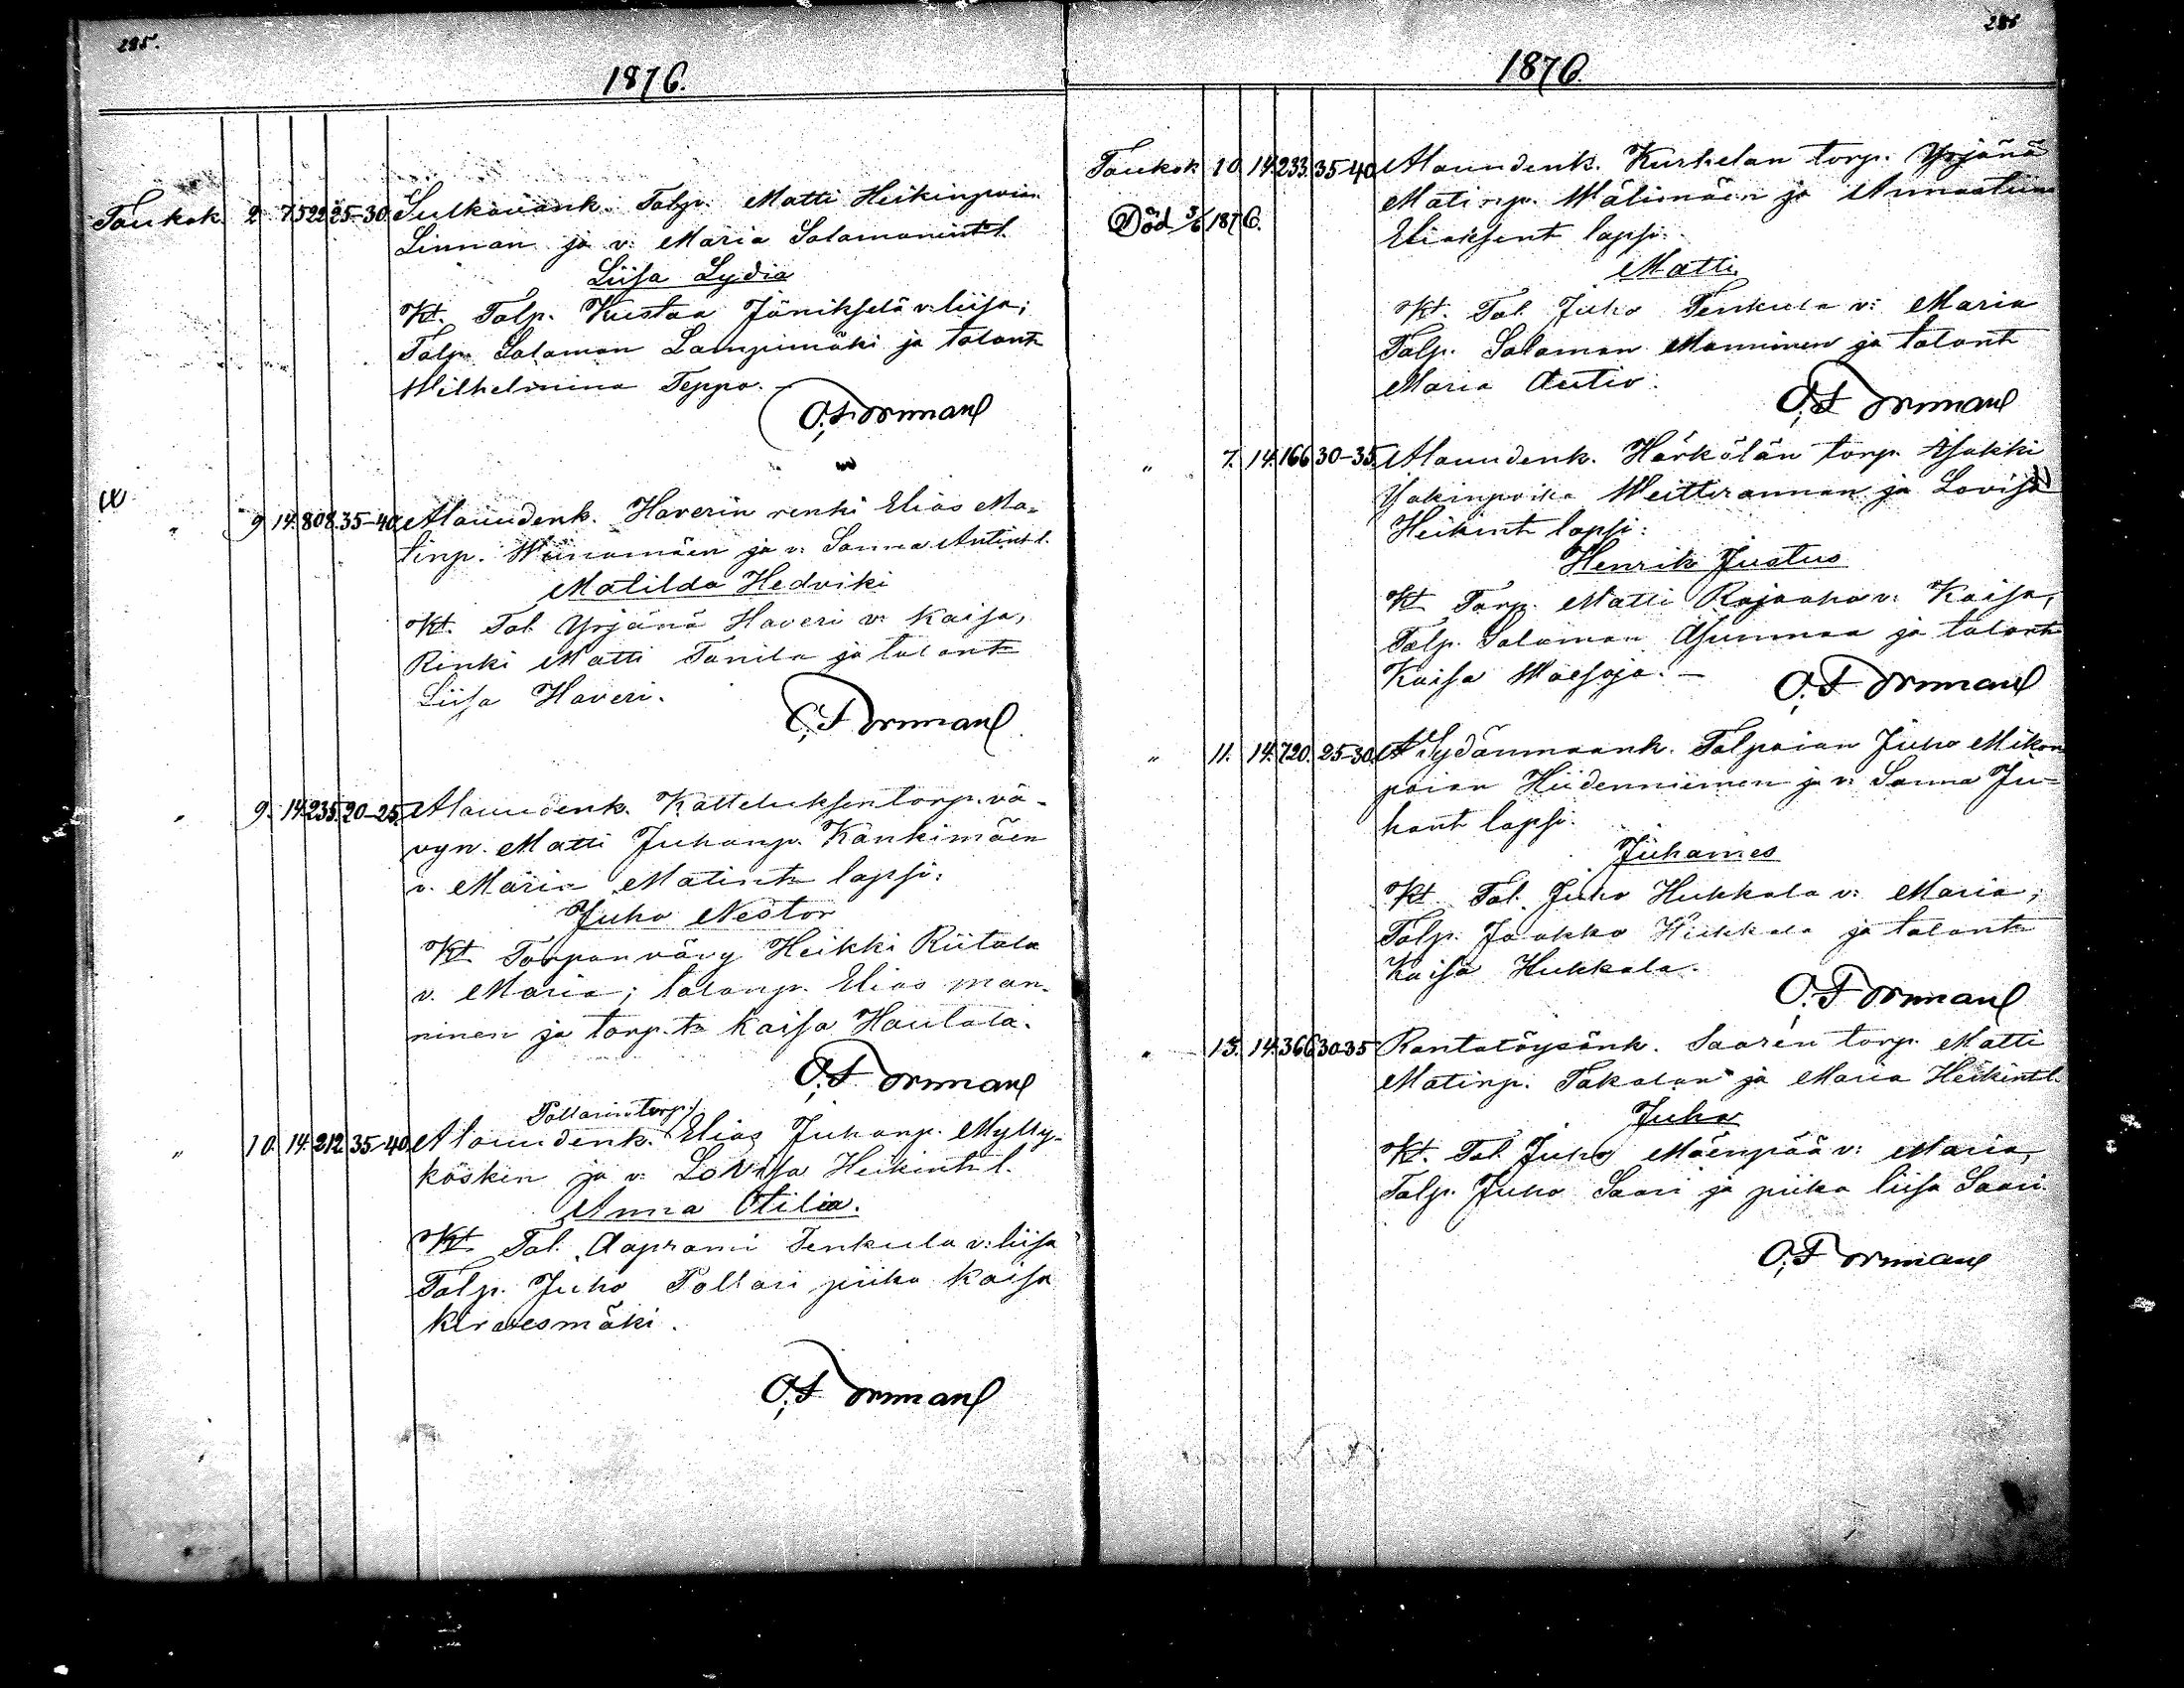 285.
1876.
Toukok 2. 7. 522 25-30 Sulkavank. Talp. Matti Heikinpoian
Linnan ja v: Maria Salamonint l.
Liisa Lydia
Kt. Talp. Kustaa Jäniksela v: liisa;
Talp. Salamon Lampimäki ja talont
Wilhelmina Teppo.
O. Forsman
" 9 14. 808. 35-40 Alauudenk. Haverin renki Elias Ma-
tinp. Wainomäen ja v: Sanna Antint l.
Matilda Hedviki
Kt. Tal. Yrjänä Haveri v: Kaisa,
Rinki Matti Tanila ja talont
Liisa Haveri.
" 9. 14. 235. 20-25. Alauudenk. Katteluksen torp. vä-
vyn. Matti Juhanp. Kankimäen
v. Maria Matint lapsi:
Juho Nestor
Kt. Torpan vävy Heikki Riitala
v. Maria; talonp. Elias man-
ninen ja torp. t. Kaisa Hautala.
Pollarin torp.
" 10. 14. 212. 35-40. Alauudenk. Elias Juhanp. Mylly-
kosken ja v: Lovisa Heikint l.
Anna Otilia.
Kt. Tal. Aaprami Tenkula v: liisa
Talp. Juho Pollari piika Kaisa
Kirvesmäki.
1876.
Toukok 10. 14. 233. 35-40 Alauudenk. Kurkelan torp. Yrjänä
Matinp. Wälimäen ja Annastiina
Död 3/6 1876.
Eliaksent lapsi.
Matti
Kt. Tal. Juho Tenkula v: Maria
Talp. Salamon Manninen ja talont
Maria Autio.
" 7. 14. 166 30-35 Alauudenk. Härkölän torp. Isakki
Isakinpoika Weittirannan ja Lovisa
Heikint lapsi:
Henrik Justus
Kt. Torp. Matti Rajaaho v: Kaisa,
Talp. Salamon Asunmaa ja talont
Kaisa Waesoja. -
" 11. 14. 720. 25-30 Sydänmaank. Talpoian Juho Mikon
poian Hiidenniemen ja v: Sanna Ju-
hont lapsi.
Juhannes
Kt. Tal. Juho Hukkala v: Maria;
Talp. Jaakko Hukkala ja talont
Kaisa Hukkala.
" 13. 14. 366 30-35 Rantatöysänk. Saaren torp. Matti
Matinp. Takalan ja Maria Heikint l.
Juho
Kt. Tal. Juho Mäenpää v: Maria,
Talp. Juho Saari ja piika liisa Saari.